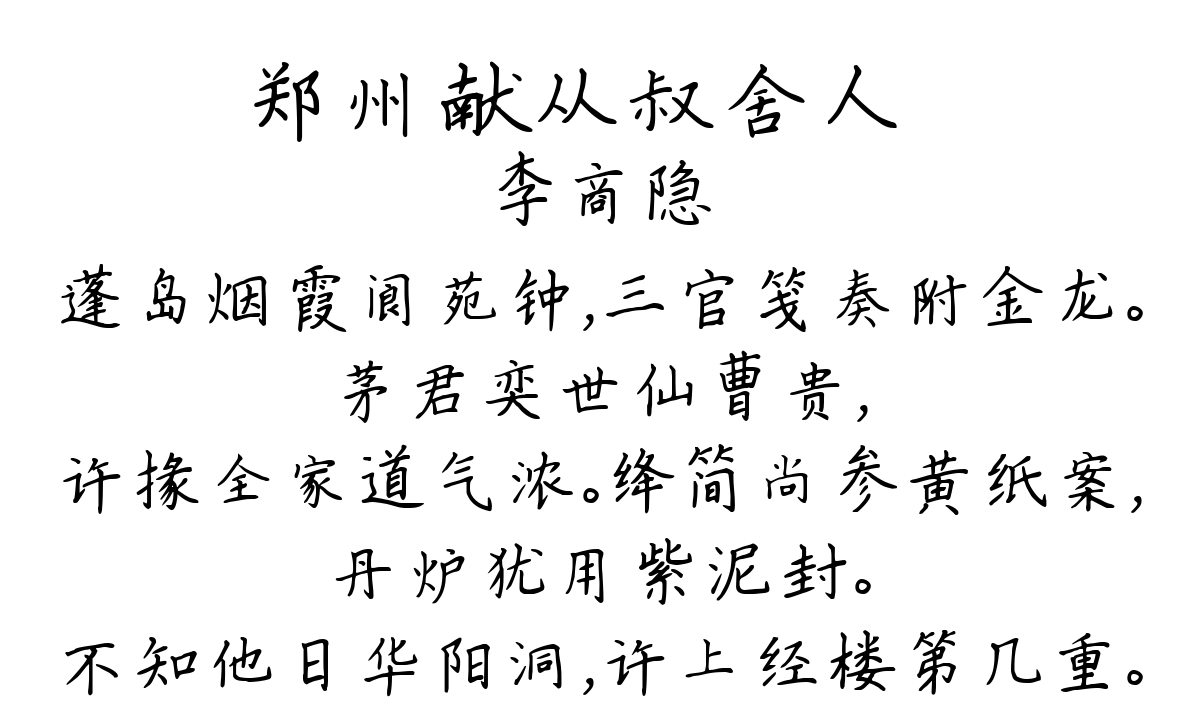 郑州献从叔舍人
李商隐
蓬岛烟霞阆苑钟,三官笺奏附金龙。
茅君奕世仙曹贵,
许掾全家道气浓。绛简尚参黄纸案,
丹炉犹用紫泥封。
不知他日华阳洞,许上经楼第几重。